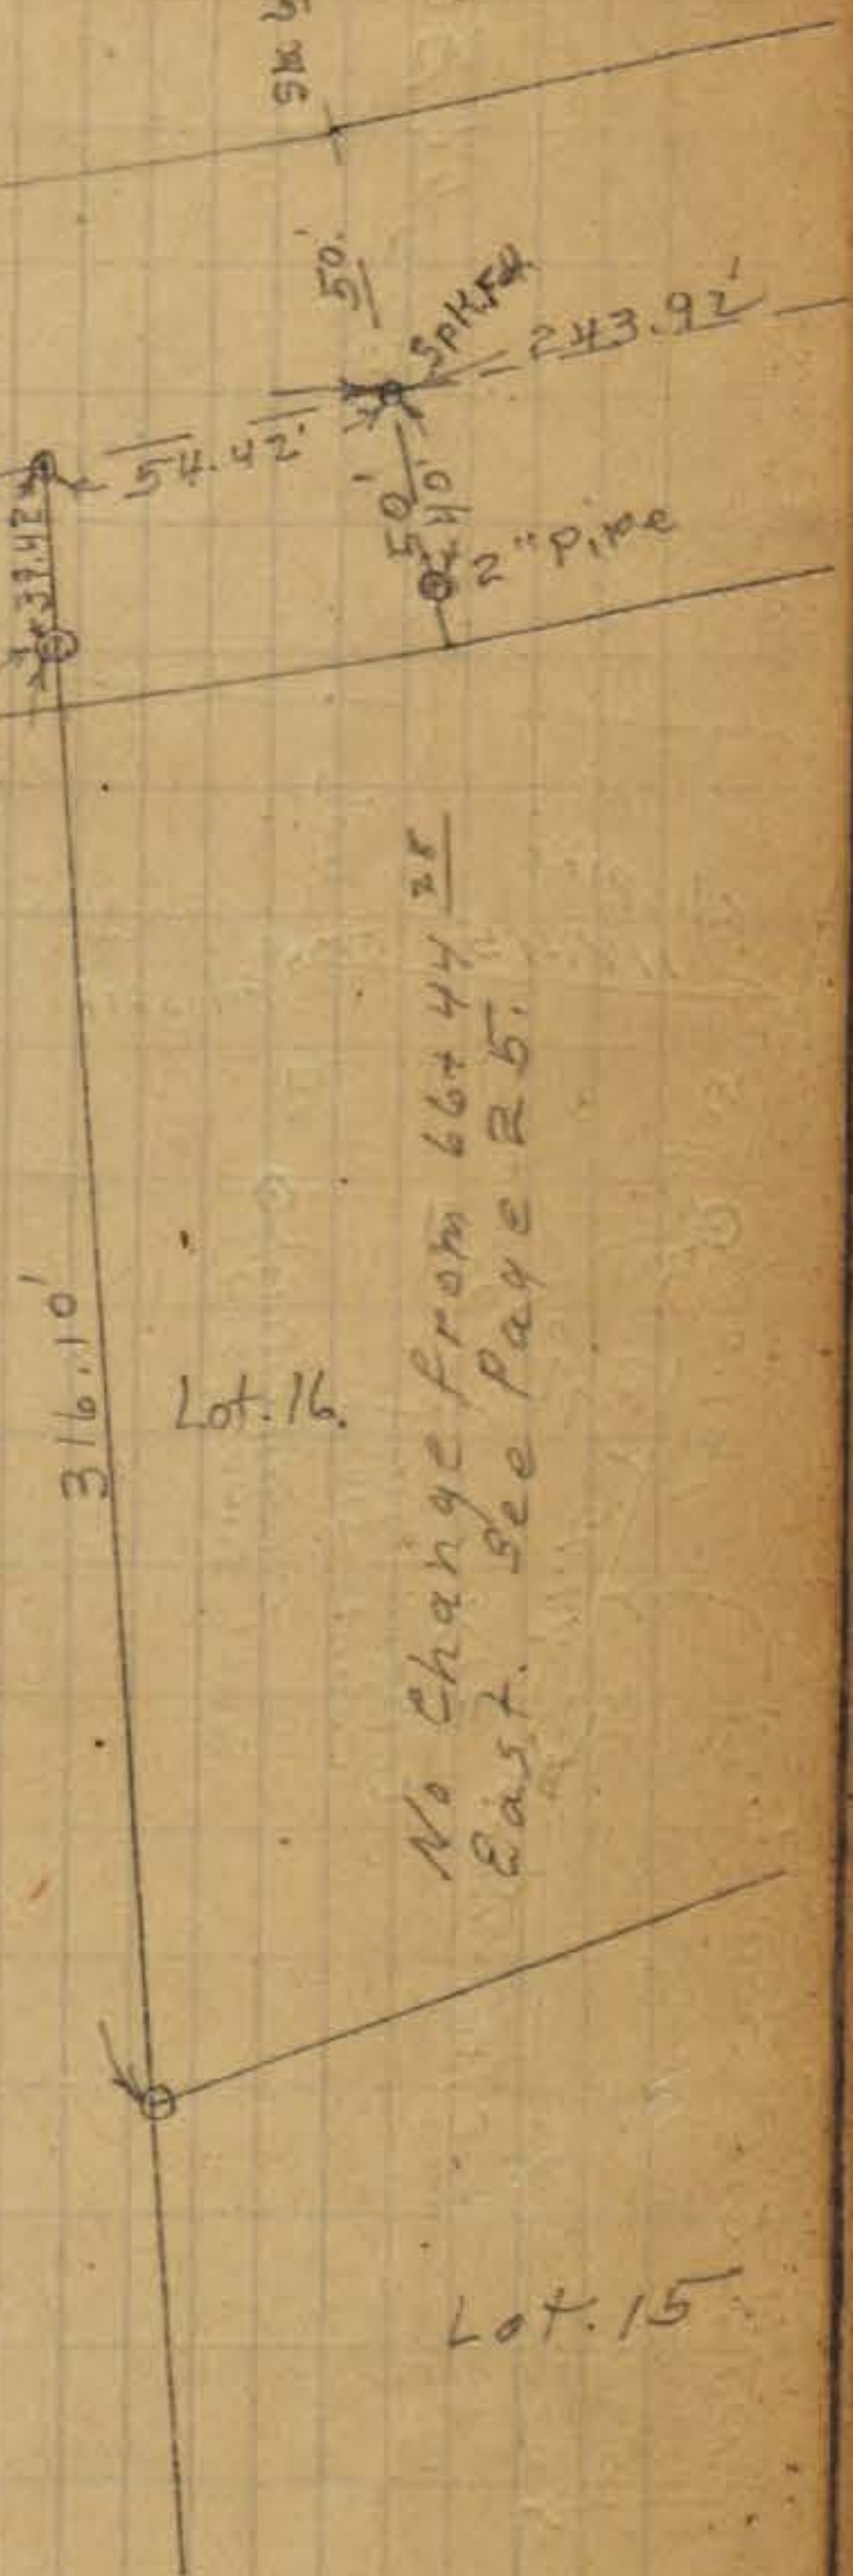 50'
Spk.Fd.
243.92'
54.42'
50'
40'
2" Pipe
39.42
316.10'
Lot. 16.
No Change from 66+44 28
East. See Page 25.
Lot. 15